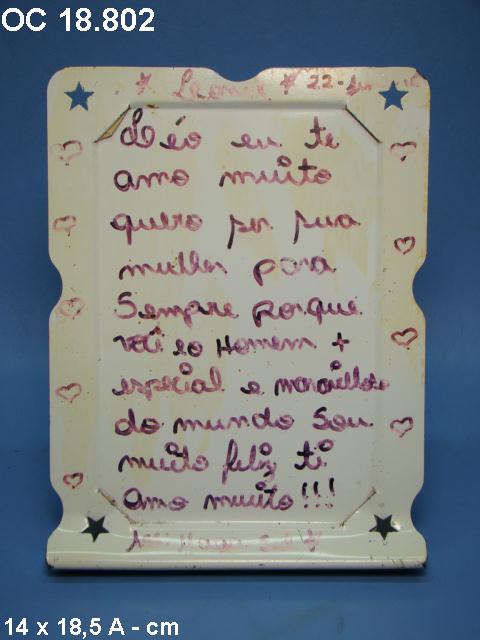 OC 18.802
Léo eu te
amo muito
quero por sua
mulher para
Sempre porque
você é o Homem +
especial e maravilhoso
do mundo Sou
muito feliz ti
amo muito!!!
14 x 18,5 A - cm